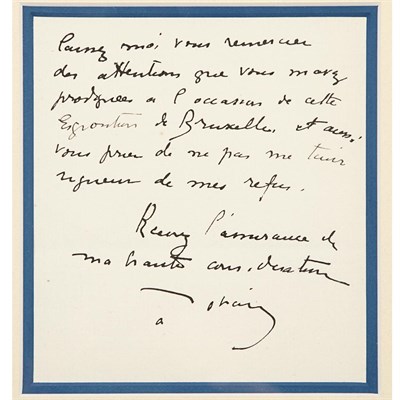 Laissez moi vous remercier
des attentions que vous m'avez
prodiguées à l'occasion de cette
Exposition de Bruxelles et aussi
vous prier de ne pas me tenir
rigueur de mes refus.
Recevez l'assurance de
ma haute considération